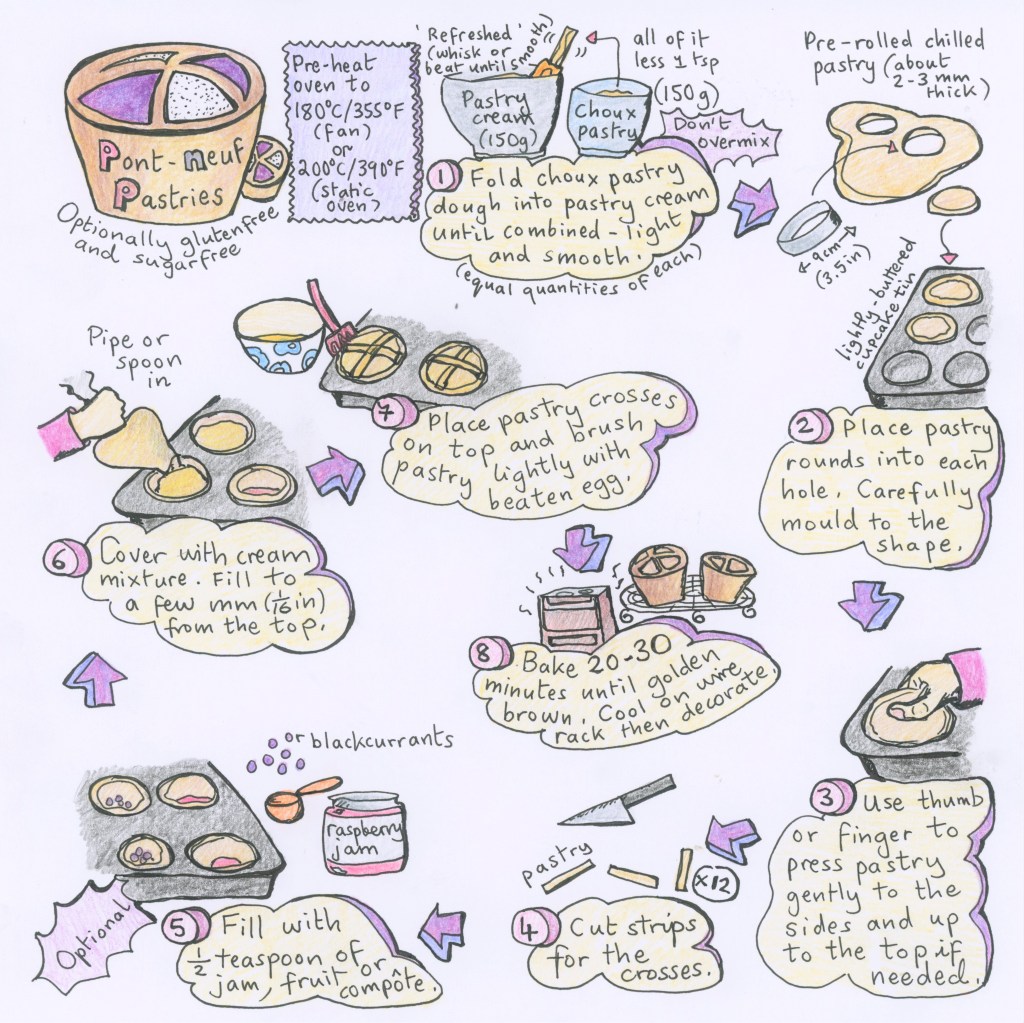 Pont-Neuf
Pastries
Optionally glutenfree
and sugarfree
Pre-heat
oven to
180°C/355°F
(Fan)
or
200°C/390°F
(static
oven)
'Refreshed'
(whisk or
beat until smooth)
Pastry
cream
(150g)
Choux
pastry
all of it
less 1 tsp
(150g)
Don't
overmix
1 Fold choux pastry
dough into pastry cream
until combined - light
and smooth.
(equal quantities of each)
Pre-rolled chilled
pastry (about
2-3 mm
thick)
9cm
(3.5in)
lightly-buttered
cupcake tin
2 Place pastry
rounds into each
hole. Carefully
mould to the
shape.
3 Use thumb
or finger to
press pastry
gently to the
sides and up
to the top if
needed.
pastry
x12
4 Cut strips
for the
crosses.
or blackcurrants
raspberry
jam
Optional
5 Fill with
1/2 teaspoon of
jam, fruit or
compôte.
Pipe or
spoon
in
6 Cover with cream
mixture. Fill to
a few mm (1/16 in)
from the top.
7 Place pastry crosses
on top and brush
pastry lightly with
beaten egg.
8 Bake 20-30
minutes until golden
brown. Cool on wire
rack then decorate.